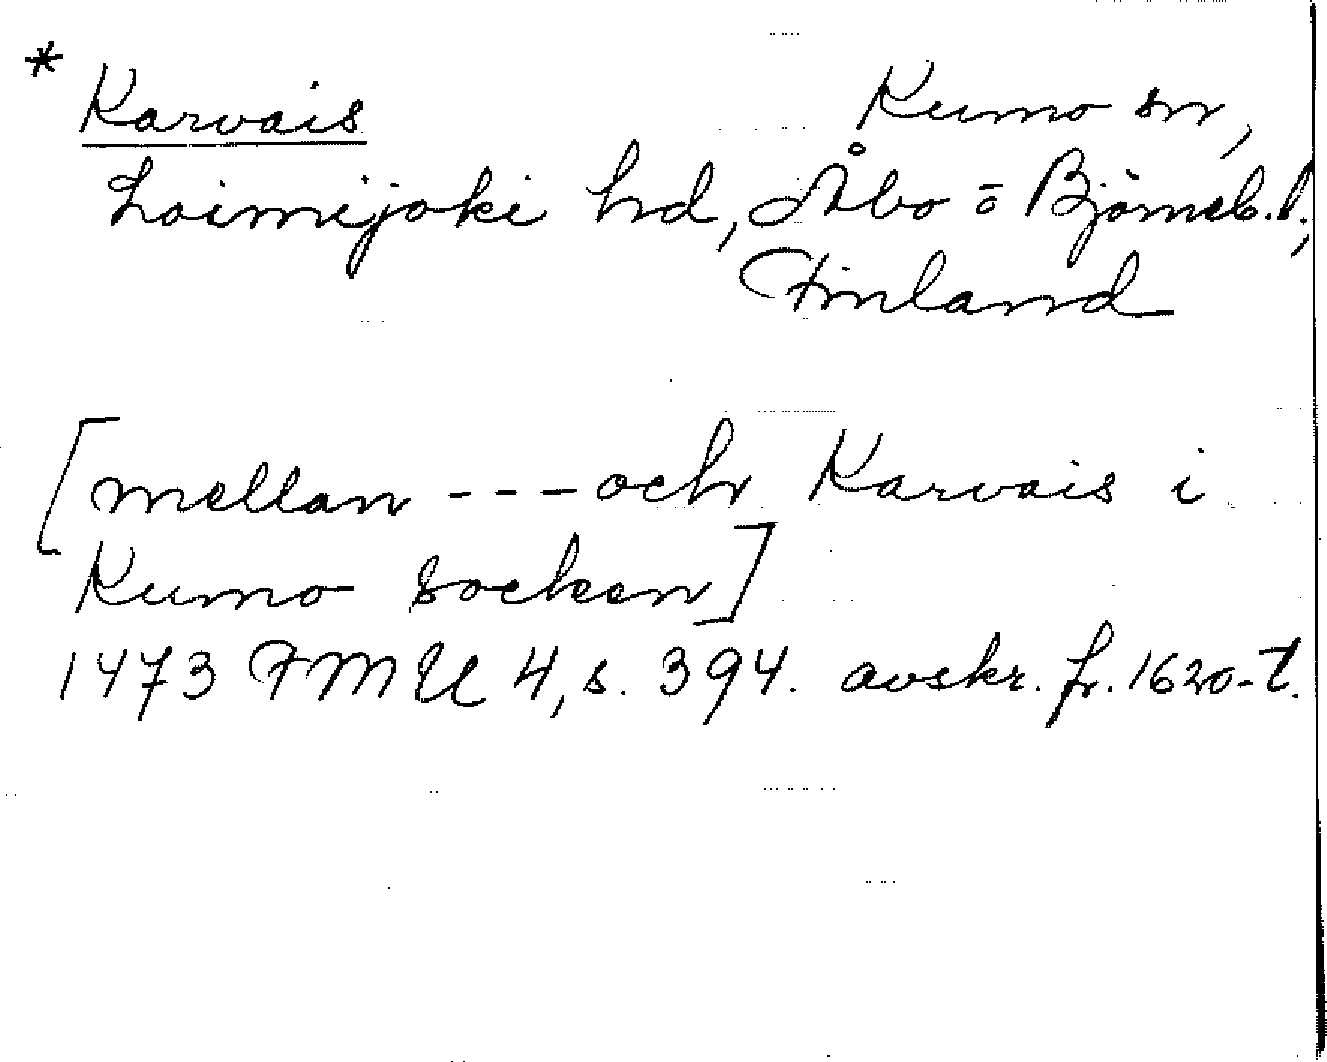 * Karvais Kumo sn,
Loimijoki hd, Åbo o Björneb. l.,
Finland
[mellan --- och Karvais i
Kumo socken]
1473 FMU 4, s. 394. avskr. fr. 1620-t.